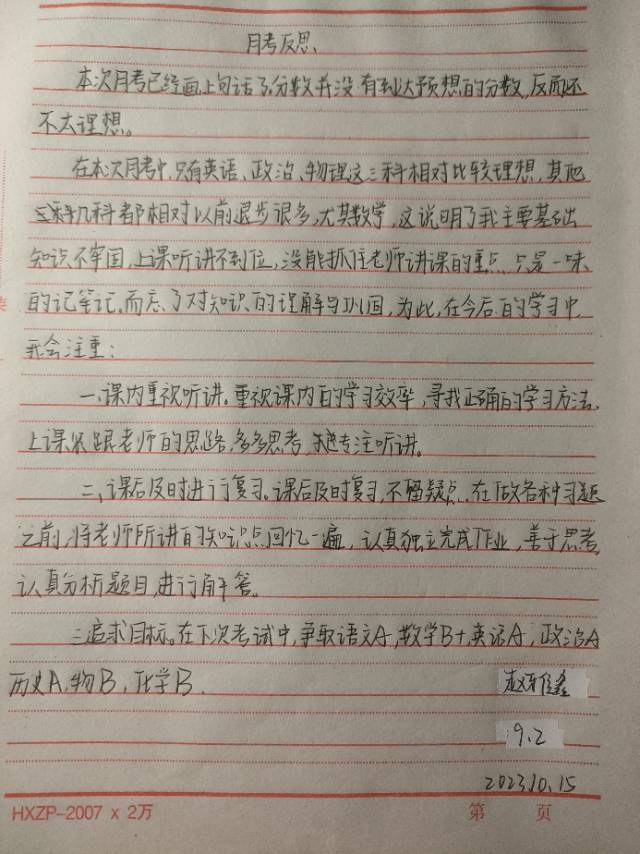 月考反思
本次月考已经画上句话了,分数并没有到达预想的分数,反而还
不太理想。
在本次月考中,只有英语、政治、物理这三科相对比较理想,其他
几科都相对以前退步很多,尤其数学,这说明了我主要基础
知识不牢固,上课听讲不到位,没能抓住老师讲课的重点,只是一味
的记笔记,而忘了对知识的理解与巩固,为此,在今后的学习中
我会注重:
一、课内重视听讲。重视课内的学习效率,寻找正确的学习方法,
上课紧跟老师的思路,多多思考,专注听讲。
二、课后及时进行复习。课后及时复习,不留疑点,在做各种习题
之前,将老师所讲的知识点回忆一遍,认真独立完成作业,善于思考,
认真分析题目,进行解答。
三追求目标。在下次考试中,争取语文A,数学B+,英语A,政治A
历史A,物B,化学B.
赵 佳鑫
9.2
2023.10.15
HXZP-2007 x 2万 第 页